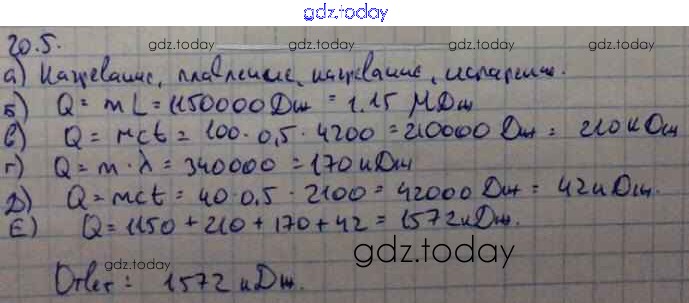 gdz.today
20.5.
gdz.today gdz.today
а) Нагревание, плавление, нагревание, испарение.
Б) Q = mL = 1150000 Дж = 1.15 МДж
в) Q = mct = 100·0,5·4200 = 210000 Дж = 210 кДж
г) Q = m·λ = 340000 = 170 кДж
gdz.today gdz.today
Д) Q = mct = 40·0,5·2100 = 42000 Дж = 42 кДж.
Е) Q = 1150 + 210 + 170 + 42 = 1572 кДж.
gdz.today gdz.today
Ответ: 1572 кДж.